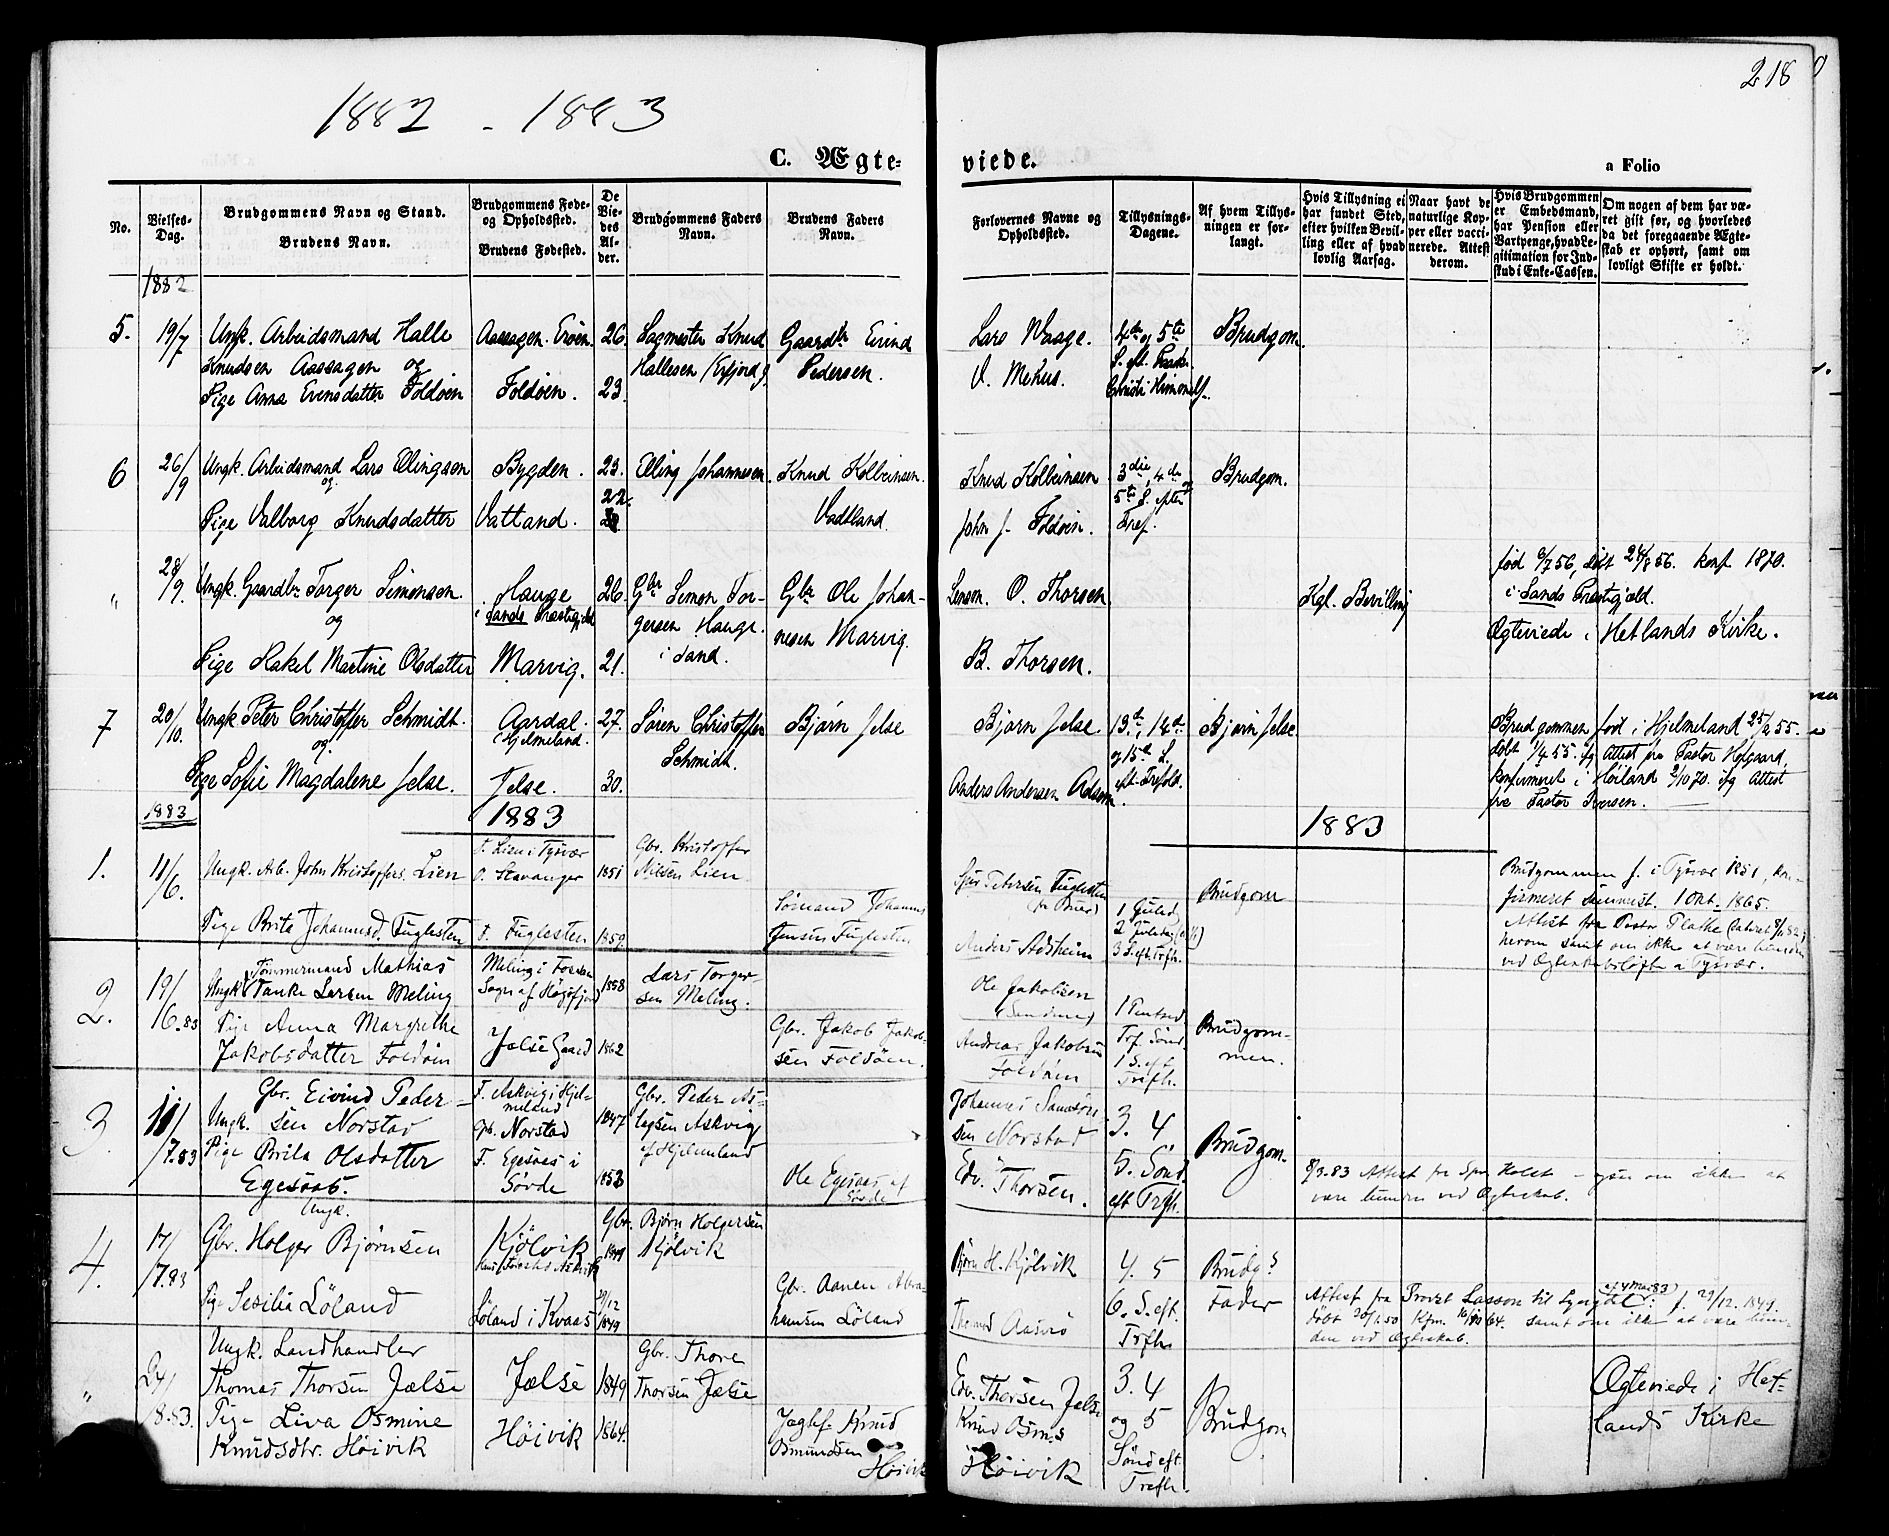 218
1882 - 1883
C. Ægteviede.
a Folio
No.
Vielses-Dag.
Brudgommens Navn og Stand.
Brudens Navn.
Brudgommens Føde- og Opholdssted.
Brudens Fødested.
De Viedes Alder.
Brudgommens Faders Navn.
Brudens Faders Navn.
Forlovernes Navne og Opholdssted.
Tillysnings-Dagene.
Af hvem Tillysningen er forlangt.
Hvis Tillysning ei har fundet Sted, efter hvilken Bevilling eller af hvad lovlig Aarsag.
Naar havt de naturlige Kopper eller vaccinerede. Attest derom.
Hvis Brudgommen er Embedsmand, har Pension eller Vartpenge, hvad Legitimation for Indskud i Enke-Cassen.
Om nogen af dem har været gift før, og hvorledes da det foregaaende Ægteskab er ophørt, samt om lovligt Skifte er holdt.
1882
5. 19/7 Ungk. Arbeidsmand Halle
Knudsen Aassagen og
Pige Anna Evensdatter Foldøen
Aassagen. Erøen.
Foldøen.
26.
23.
Sagmester Knud
Hallesen
Gaardbr Eivind
Pedersen.
Lars Waage.
V. Mehus.
4de og 5te
S. eft. Paaske
Christi Himmelf.
Brudgom.
6 26/9 Ungk. Arbeidsmand Lars Ellingsen
og
Pige Valborg Knudsdatter
Bygden.
Vatland.
23.
22.
Elling Johannesen.
Knud Kolbeinsen.
Vadland.
Knud Kolbeinsen
John J. Foldøen.
3die, 4de og
5te S. efter
Tref.
Brudgom.
" 28/9. Ungk. Gaardbr Torger Simonsen
og
Pige Hakel Martine Olsdatter
Hauge
i Sands Præstegjeld
Marvig.
26.
21.
Gbr Simon Torgersen Hauge
i Sand.
Gbr Ole Johannesen Marvig.
O. Thorsen
B. Thorsen.
Kgl. Bevilling
fød 8/7 56, døbt 24/8 56. konf 1870.
i Sands Præstegjeld.
Ægteviede i Hetlands Kirke.
7 20/10. Ungk Peter Christoffer Schmidt.
og
Pige Sofie Magdalene Jelse.
Aardal.
Hjelmeland.
Jelse.
27.
30.
Søren Christoffer
Schmidt.
Bjørn Jelse
Bjørn Jelse.
Anders Andersen
13de, 14de
og 15de S.
eft. Trefold.
Bjørn Jelse
Brudgommen fød i Hjelmeland 25/2 55.
døbt 1/4 55. ifg Attest fra Pastor Kofgaard,
konfirmeret i Høiland 2/10 70. ifg Attest
fra Pastor Iversen.
1883
1883
1883
1. 11/6. Ungk. Arb. John Kristoffers. Lien
Pige Brita Johannesd. Fuglesten
F. Lien i Tysvær
O. Stavanger
F. Fuglesten
1851
1859
Gbr. Kristoffer
Nilsen Lien
Sømand Johannes
Jensen Fuglesten
Petersen Fuglesten
Anders Aasheim
Brudgom
Brudgommen f. i Tysvær 1851, konfirmeret sammest. 1 Okt. 1865.
Attest fra Pastor Flathe
herom samt om ikke at være bunden
ved Ægteskabsløfte a Tysvær.
2. 19/6.83 Ungk. Tømmermand Mathias
Tanke Larsen Meling
Pige Anna Margrethe
Jakobsdatter Foldøen
Sogn af Høgsfjord
Jelse Gaard
1858
1862
Lars Torgersen Meling.
Gbr. Jakob Jakobsen Foldøen.
Ole Jakobsen
Andreas Jakobsen
Foldøen
Trf. Sønd.
1 S. eft
Trefh.
Brudgommen.
3. 11/7.83 Gbr. Eivind Pedersen Norstad
Ungk.
Pige Brita Olsdatter
Egesaas.
F. Askvig i Hjelmeland
Norstad
F. Egesaas i
Søvde
1847
1853
Gbr. Peder Aslagsen Askvig
af Hjelmeland
Ole Egesaas af
Søvde
Johannes Samsonsen Norstad
Edv. Thorsen.
3. 4
5. Sønd.
eft Trfh.
Brudgom.
8/3.83 Attest fra Spr. Holst - om ikke at
være bunden ved Ægteskab.
4. 17/7.83 Ungk.
Gbr. Holger Bjørnsen
Pige Sesilia Løland
Kjølvik
Løland i Kvaas
29/12 1849
Gbr. Bjørn Holgersen
Kjølvik
Gbr. Aanen Abrahamsen Løland
Bjørn H. Kjølvik
4. 5
6. S. eft.
Trfh
Brudg.s
Fader
Attest fra Provst Lasson til Lyngdal: f. 29/12. 1849.
døbt 20/1.50 Kfm. 64. samt om ikke at være bunden ved Ægteskab.
" 24/8.83. Ungk. Landhandler
Thomas Thorsen Jælse
Pige Liva Osmine
Knudsdtr. Høivik
Jælse
Høivik
1849
1864.
Gbr. Thore
Thorsen Jælse
Knud
Osmundsen
Høivik
Edv. Thorsen Jælse
Knud Osm.s
Høivik
3. 4
og 5
Sønd eft.
Trefh.
Brudgom
Ægteviede i Hetlands Kirke